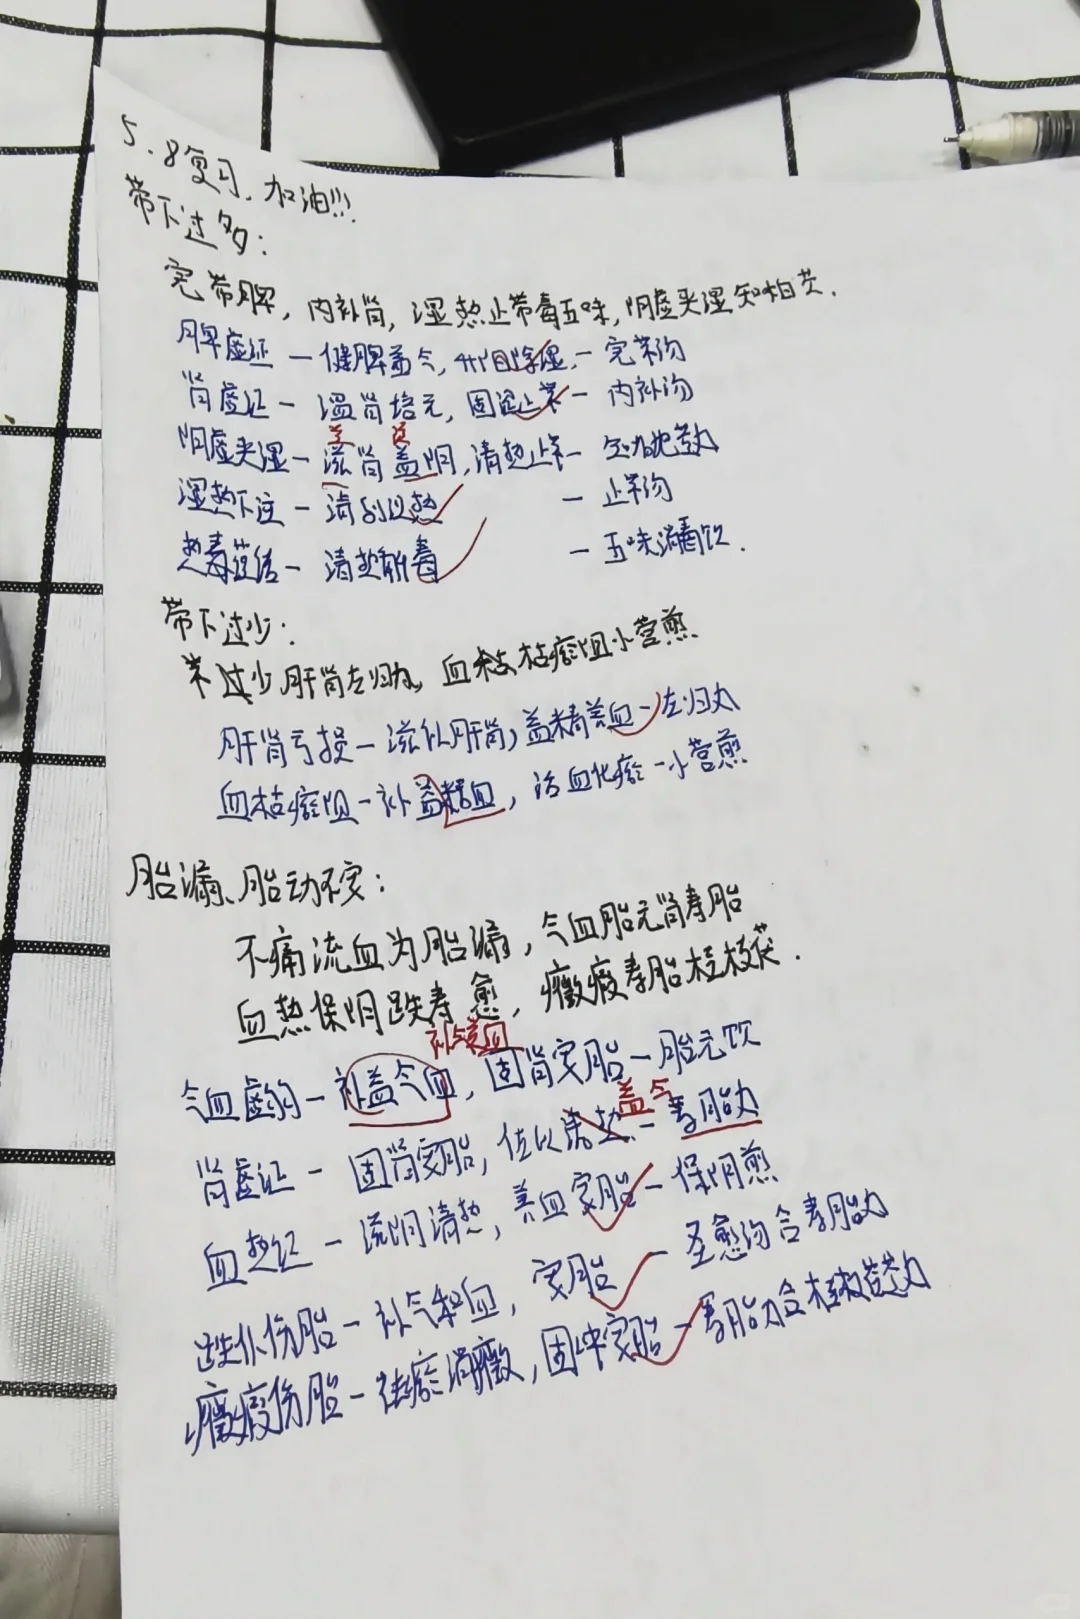 5.8复习，加油!!!
带下过多：
完带脾，内补肾，湿热止带毒五味，阴虚夹湿知柏芡.
脾虚证 — 健脾益气，升阳除湿 — 完带汤
肾虚证 — 温肾培元，固涩止带 — 内补汤
阴虚夹湿 — 滋肾益阴，清热止带 — 知柏地黄丸
湿热下注 — 清利湿热 — 止带汤
热毒蕴结 — 清热解毒 — 五味消毒饮.
带下过少：
带过少肝肾左归丸，血枯枯瘀阻小营煎
肝肾亏损 — 滋补肝肾，益精养血 — 左归丸
血枯瘀阻 — 补益精血，活血化瘀 — 小营煎
胎漏、胎动不安：
不痛流血为胎漏，气血胎元肾寿胎
血热保阴跌寿愈，癥瘕寿胎桂枝茯.
补气养血
气血虚弱 — 补益气血，固肾安胎 — 胎元饮
益气
肾虚证 — 固肾安胎，佐以清热 — 寿胎丸
血热证 — 滋阴清热，养血安胎 — 保阴煎
跌仆伤胎 — 补气和血，安胎 — 圣愈汤合寿胎丸
癥瘕伤胎 — 祛瘀消癥，固冲安胎 — 寿胎丸合桂枝茯苓丸